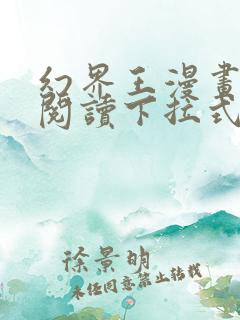 幻界王漫畫
閱讀下拉式
徐景明
未經同意禁止轉載